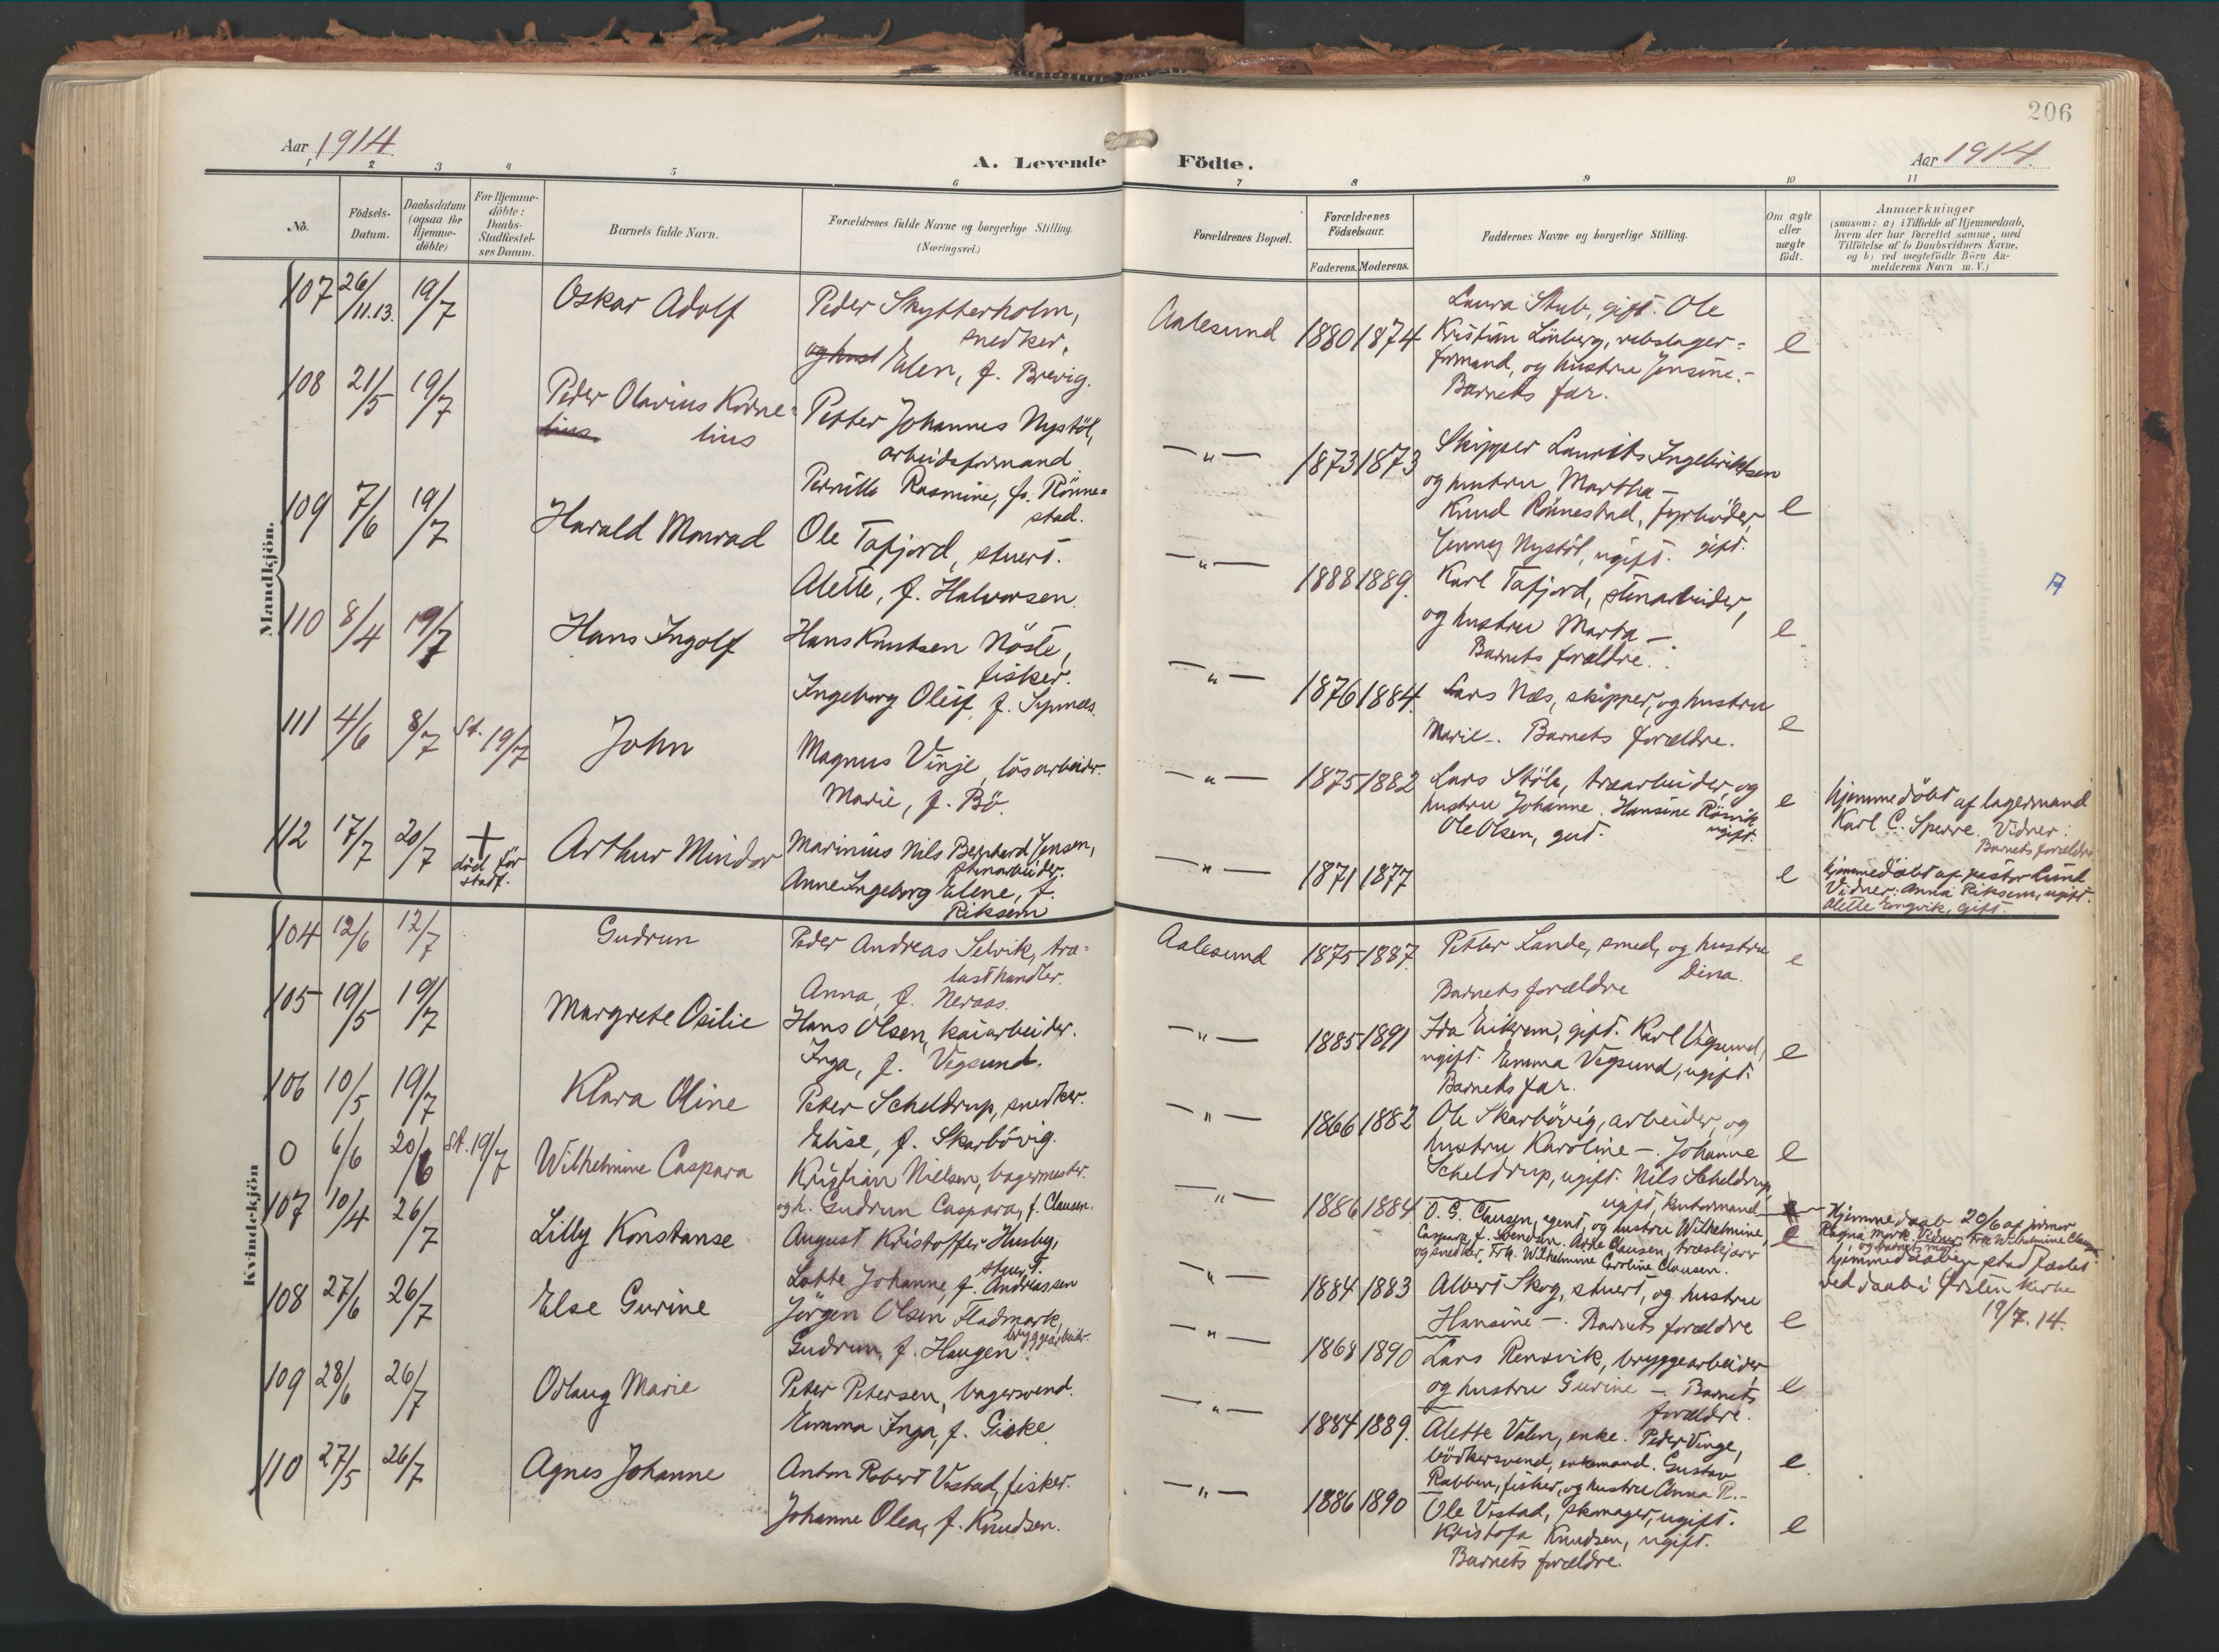 206
Aar 1914.
A. Levende Födte.
Aar 1914.
1 2 3 4 5 6 7 8 9 10 11
No.
Födsels-
Datum.
Daabsdatum
(ogsaa for
Hjemme-
döbte)
For Hjemme-
döbte:
Daabs-
Stadfæstel-
ses Datum.
Barnets fulde Navn.
Forældrenes fulde Navne og borgerlige Stilling.
(Næringsvei.)
Forældrenes Bopæl.
Forældrenes
Födselsaar.
Faderens. Moderens.
Faddernes Navne og borgerlige Stilling.
Om ægte
eller
uægte
födt.
Anmærkninger
(saasom: a) i Tilfælde af Hjemmedaab,
hvem der har forrettet samme, med
Tilföielse af to Daabsvidners Navne.
og b) ved uegtefödte Börn An-
melderens Navn m. V.)
Mandkjön.
107 26/11.13. 19/7 Oskar Adolf
Peder Skytterholm,
snedker,
og hust Elen, f. Brevig.
Aalesund 1880 1874
Laura Stub, gift. Ole
Kristian Lönberg, rebslager-
formand, og hustru Jensine.-
Barnets far.
e
108 21/5 19/7 Peder Olavius Korne-
lius lius
Petter Johannes Nystöl,
arbeidsformand
Pernille Rasmine, f. Rönne-
stad.
-"- 1873 1873
Skipper Laurits Ingebriktsen
og hustru Martha -
Knud Rönnestad, fyrböder,
gift.
Jenny Nystöl, ugift.
e
109 7/6 19/7 Harald Monrad
Ole Tafjord, stuert.
Alette, f. Halvorsen.
-"- 1888 1889.
Karl Tafjord, stenarbeider,
og hustru Marta -
Barnets forældre.
e
A
110 8/4 19/7 Hans Ingolf
Hans Knutsen Nöste,
fisker.
Ingeborg Oleif, f. Synnes.
-"- 1876 1884.
Lars Næs, skipper, og hustru
Marie-. Barnets forældre.
e
111 4/6 8/7 St. 19/7 John
Magnus Vinje, lösarbeider.
Marie, f. Bö.
-"- 1875 1882
Lars Stöle, træarbeider, og
hustru Johanne. Hansine Rösvik
ugift.
Ole Olsen, gut.
e
hjemmedöbt af lagermand
Karl C. Sperre. Vidner:
Barnets forældre
112 17/7 20/7 +
död för
stadf.
Arthur Mindor
Marinius Nils Bernhard Jensen,
stenarbeider.
Anne Ingeborg Elene, f.
Riksem
-"- 1871 1877
e
hjemmedöbt af pastor Lund
Vidner: Anna Riksem, ugift.
Alette Engvik, gift.
Kvindekjön
104 12/6 12/7 Gudrun
Peder Andreas Selvik, tra-
lasthandler.
Anna, f. Neraas.
Aalesund 1875 1887.
Petter Lande, smed, og hustru
Dina.
Barnets forældre
e
105 19/5 19/7 Margrete Otilie
Hans Olsen, kaiarbeider.
Inga, f. Vegsund.
-"- 1885 1891
Ida Eikrem, gift. Karl Vegsund,
ugift. Emma Vegsund, ugift.
Barnets far.
e
106 10/5 19/7 Klara Oline
Peter Scheldrup, snedker.
Elise, f. Skarbövig.
-"- 1866 1882
Ole Skarbövig, arbeider, og
hustru Karoline -. Johanne
Scheldrup, ugift. Nils Scheldrup,
ugift, kontormand
e
0 6/6 20/6 St. 19/7 Wilhelmine Caspara
Kristian Nielsen, bagermester.
og h. Gudrun Caspara, f. Clausen.
-"- 1886 1884.
O. G. Clausen, agent, og hustru Wilhelmine
Caspara, f. Svendsen. Arne Clausen, træslejarr
og snedker, Frk. Wilhelmine Caroline Clausen.
e
Hjemmedaab 20/6 af jomor
Ragna Mork. Vidner: Frk. Wilhelmine Clausen
og barnets mor
hjemmedaaben stadfæstet
ved daab i kirke
19/7.14.
107 10/4 26/7 Lilly Konstanse
August Kristoffer Husby,
stuert.
Lotte Johanne, f. Andreassen
-"- 1884 1883
Albert Skog, stuert, og hustru
Hansine -. Barnets forældre
e
108 27/6 26/7 Else Gurine
Jörgen Olsen Fladmark,
bryggearbeider.
Gudrun, f. Haugen.
-"- 1868 1890
Lars Rensvik, bryggearbeider,
og hustru Gurine -. Barnets
forældre.
e
109 28/6 26/7 Odlaug Marie
Peter Petersen, bagersvend.
Emma Inga, f. Giske
-"- 1884 1889.
Alette Valen, enke. Peder Vinge,
bödkersvend, enkemand. Gustav
Rabben, fisker, og hustru Anna R.-
e
110 27/5 26/7 Agnes Johanne
Anton Robert Vestad, fisker.
Johanne Olea, f. Knudsen.
-"- 1886 1890
Ole Vestad, skomager, ugift.
Kristofa Knudsen, ugift.
Barnets forældre.
e